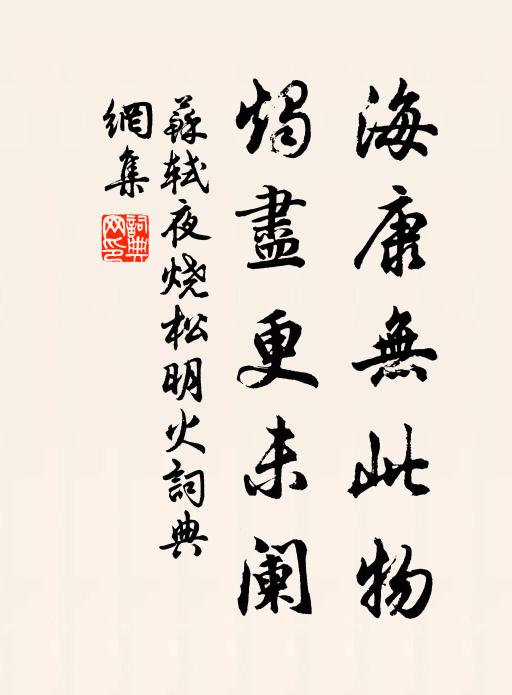 海康無此物
燭盡更未阑
蘇轼夜烧松明火詞典
網集
詞典網印